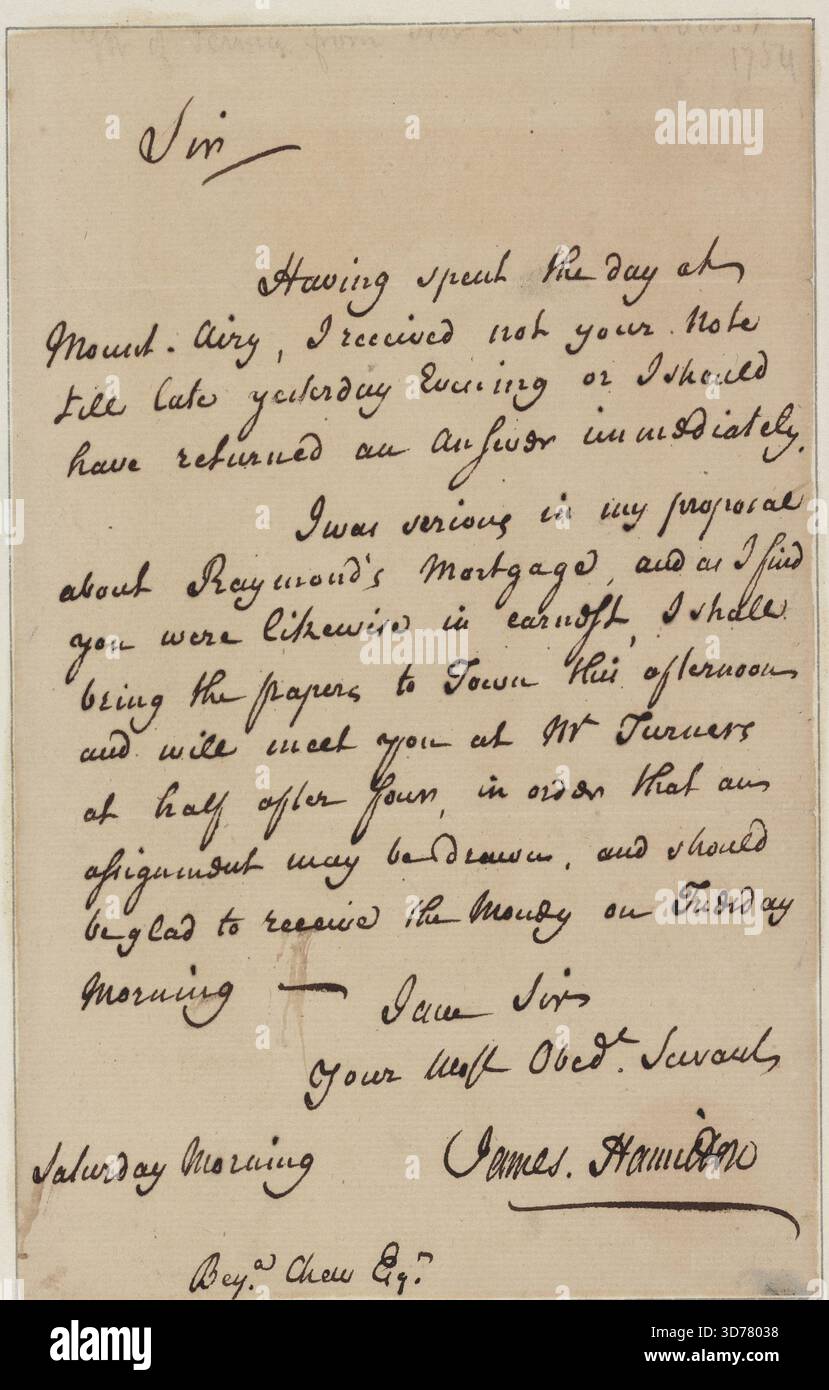 1754
Sir
Having spent the day at
Mount. Airy, I received not your Note
till late yesterday Evening or I should
have returned an answer immediately.
I was serious in my proposal
about Raymond's Mortgage, and as I find
you were likewise in earnest, I shall
bring the papers to Town this afternoon
and will meet you at Mr Turners
at half after four, in order that an
assignment may be drawn, and should
be glad to receive the Money on Tuesday
Morning —
I am Sir
Your Most Obedt. Servant
Saturday Morning James. Hamilton
Benja. Chew Esqr.
alamy
Image ID: 3D78038
www.alamy.com